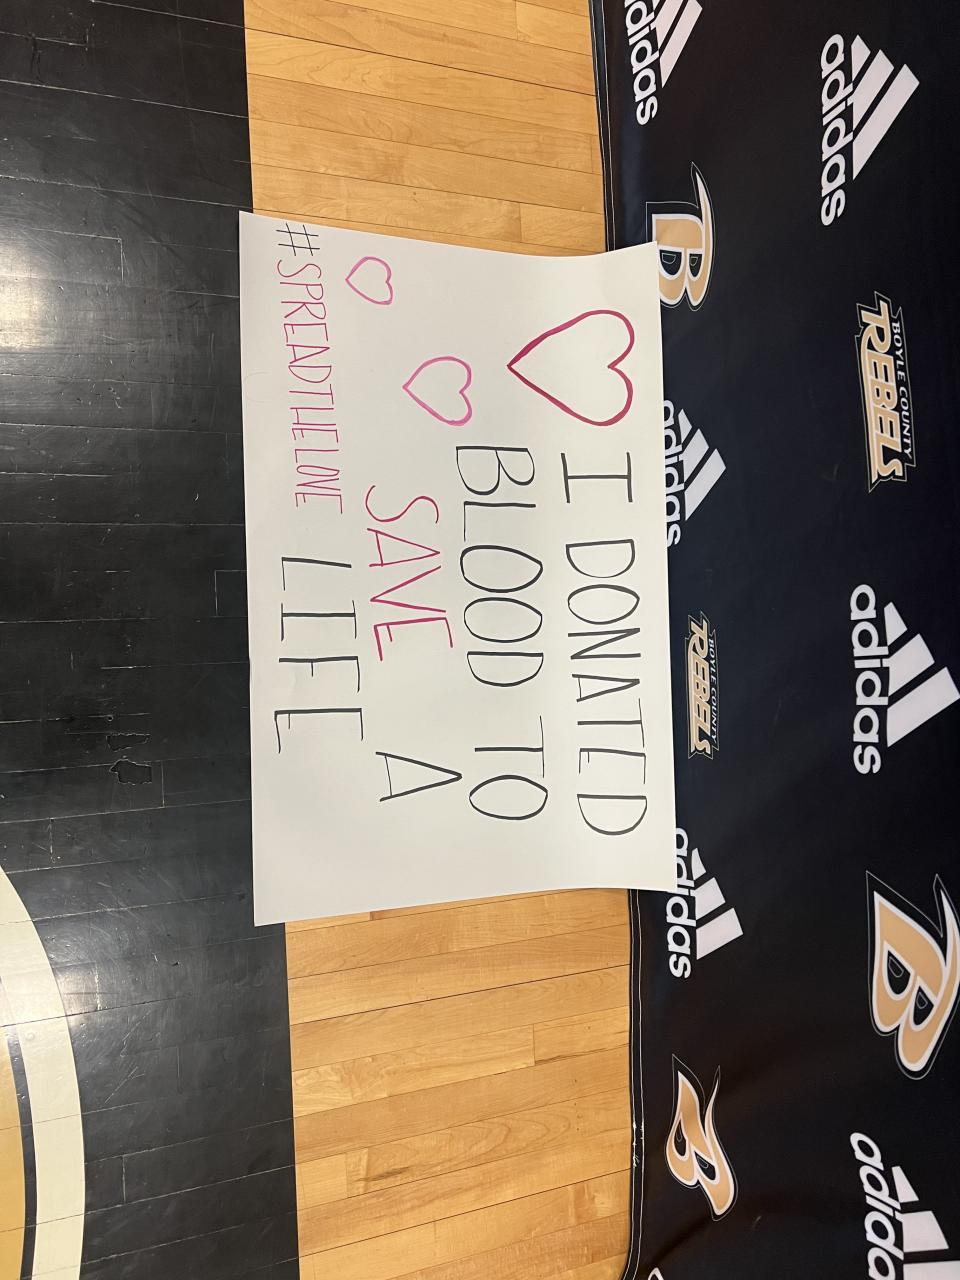 I DONATED
BLOOD TO
SAVE A
LIFE
#SPREADTHELOVE
adidas
adidas
B
BOYLE COUNTY
REBELS
adidas
adidas
BOYLE COUNTY
REBELS
adidas
B
B
adidas